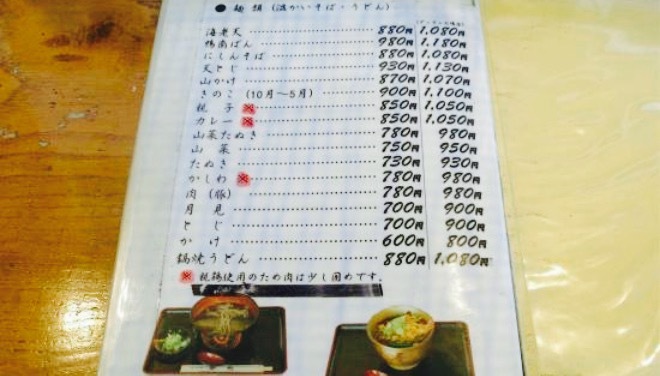 ● 麺類(温かいそば・うどん)
海老天 880円 1,080円
鴨南ばん 980円 1,180円
にしんそば 880円 1,080円
天とじ 930円 1,130円
山かけ 870円 1,070円
きのこ(10月〜5月) 900円 1,100円
親子 ※ 850円 1,050円
カレー ※ 850円 1,050円
山菜たぬき 780円 980円
山菜 750円 950円
たぬき 730円 930円
かしわ ※ 780円 980円
肉(豚) 780円 980円
月見 700円 900円
とじ 700円 900円
かけ 600円 800円
鍋焼うどん 880円 1,080円
※ 親鶏使用のため肉は少し固めです。